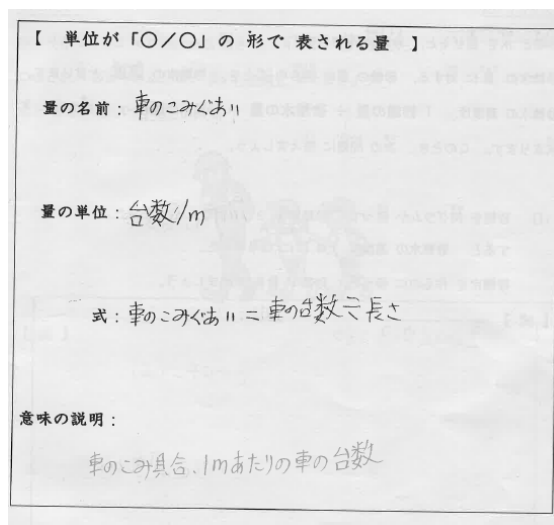 【 単位が「〇/〇」の 形で 表される量 】
量の名前：車のこみぐあい
量の単位：台数/m
式：車のこみぐあい＝車の台数÷長さ
意味の説明：
車のこみ具合、1mあたりの車の台数